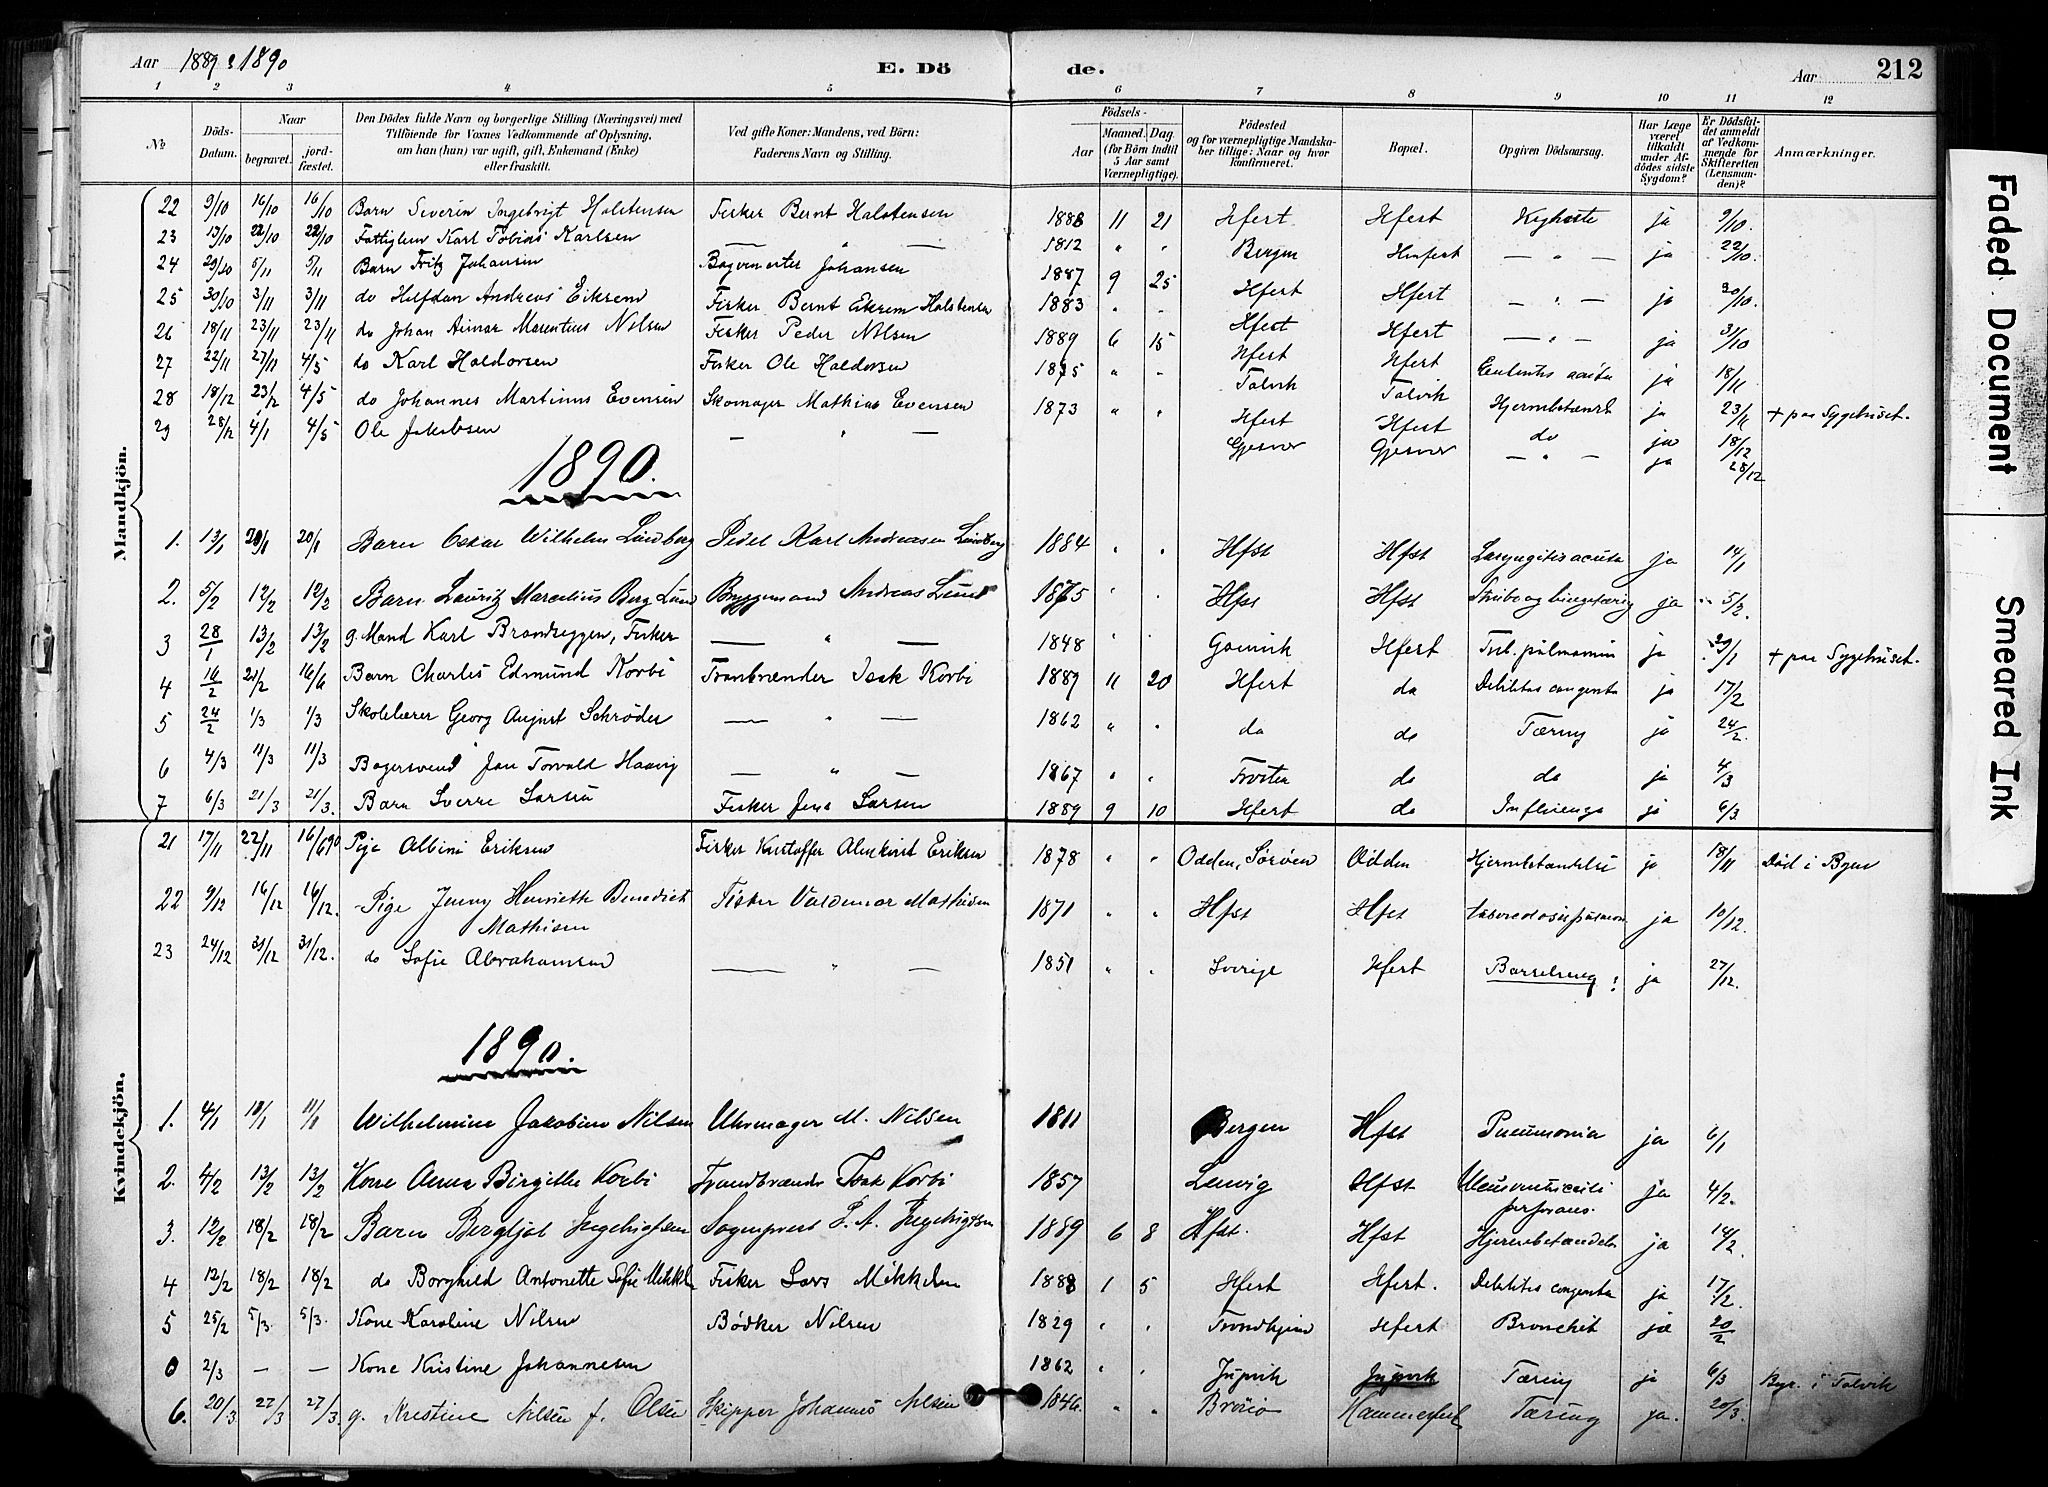 Aar 1889 & 1890
E. Dö de.
Aar 212
1 2 3 4 5 6 7 8 9 10 11 12
№
Döds-Datum.
Naar begravet. jordfæstet.
Den Dödes fulde Navn og borgerlige Stilling (Næringsvei) med
Tilföiende för Voxnes Vedkommende af Oplysning,
om han (hun) var ugift, gift, Enkemand (Enke)
eller fraskilt.
Ved gifte Koner: Mandens, ved Börn:
Faderens Navn og Stilling.
Födsels-
Aar Maaned. Dag.
(for Börn indtil 5 Aar samt Værnepligtige).
Födested
og for værnepligtige Mandskaber tillige: Naar og hvor konfirmeret.
Bopæl.
Opgiven Dödsaarsag.
Har Læge været tilkaldt under Afdödes sidste Sygdom?
Er Dödsfaldet anmeldt af Vedkommende for Skifteretten (Lensmanden)?
Anmærkninger.
Mandkjön.
22 9/10 16/10 16/10 Barn Severin Ingebrigt Halstensen Fisker Bernt Halstensen 1888 11 21 Hfest Hfest Kighoste ja 9/10.
23 13/10 22/10 22/10 Fattiglem Karl Tobias Karlsen — " — 1812 " " Bergen Hmfest — " — ja 22/10.
24 29/10 5/11 5/11 Barn Fritz Johansen Johansen 1887 9 25 Hfest Hfest — " — ja 30/10.
25 30/10 3/11 3/11 do Halfdan Andreas Eikrem Fisker Bernt Eikrem Halstensen 1883 " " Hfest Hfest — " — ja 31/10
26 18/11 23/11 23/11 do Johan Marentius Nilsen Fisker Peder Nilsen 1889 6 15 Hfest Hfest ja 18/11
27 22/11 27/11 4/5 do Karl Haldorsen Fisker Ole Haldorsen 1875 " " Talvik Talvik Hjernebetændelse ja 23/11 + paa Sygehuset.
28 18/12 23/12 4/5 do Johannes Martinus Evensen Skomager Mathias Evensen 1873 " " Hfest Hfest do ja 18/12
29 28/12 4/1 4/5 Ole Jakobsen — " — Gjesvær Gjesvær — " — ja 28/12
1890.
1. 13/1 20/1 20/1 Barn Oskar Wilhelm Lundberg Pedel Karl Andreasen Lundberg 1884 " " Hfst Hfst Laryngitis acuta ja 14/1
2. 5/2 12/2 12/2 Barn Lauritz Marcelius Berg Lund Bryggemand Andreas Lund 1875 " " Hfst Hfst ja 5/2.
3 28/1 13/2 13/2 g. Mand Karl Brandseggen, Fisker — " — 1848 " " Gamvik Hfest Tub. pulmonum ja 29/1 + paa Sygehuset.
4 16/2 21/2 16/6 Barn Charles Edmund Korbi Tranbrænder Isak Korbi 1889 11 20 Hfest do Debilitas congenita ja 17/2
5 24/2 1/3 1/3 Skolelærer Georg August Schrøder — " — 1862 " " do do Tæring ja 24/2.
6 4/3 11/3 11/3 Bagersvend Jan Torvald Haavig — " — 1867 " " do do ja 4/3
7 6/3 21/3 21/3. Barn Sverre Larsen Fisker Jens Larsen 1889 9 10 Hfest do Influenza ja 6/3
Kvindekjön.
21 17/11 22/11 16/6 90 Pige Albine Eriksen Fisker Kristoffer Almkvist Eriksen 1878 " " Odden, Sørøen Odden Hjernebetændelse ja 18/11 Död i Byen
22 9/12 16/12 16/12. Pige Jenny Henriette Benedict Mathisen Fisker Valdemar Mathisen 1871 " " Hfst Hfst ja 10/12.
23 24/12 31/12 31/12. do Sofie Abrahamsen — " — 1851 " " Sverige Hfest Barselseng ! ja 27/12.
1890.
1. 4/1 11/1 11/1 Wilhelmine Jakobine Nilsen Uhrmager M. Nilsen 1811 Bergen Hfst Pneumonia ja 6/1
2. 4/2 13/2 13/2 Kone Anna Birgitte Korbi Tranbrænder Isak Korbi 1857 Hfst perforans. ja 4/2.
3. 12/2 18/2 18/2 Barn Bergljot Ingebrigtsen Sogneprest E. A. Ingebrigtsen 1889 6 8 Hfst. Hfst Hjernebetændelse ja 14/2
4 12/2 18/2 18/2 do Borghild Antonette Sofie Mikkelsen Fisker Lars Mikkelsen 1888 1 5 Hfest Hfest. Debilitas congenita ja 17/2.
5 25/2 5/3. 5/3. Kone Karoline Nilsen Bödker Nilsen 1829 " " Trondhjem Hfest Bronchit ja 20/2
0 2/3 — — Kone Kristine Johannesen 1862 " " Jupvik Jupvik Tæring ja 6/3 Bgr. i Talvik
6. 20/3 27/3 27/3. g. Kristine Nilsen f. Olsen Skipper Johannes Nilsen 1846. " " Hammerfest Tæring ja. 20/3.
Faded Document
Smeared Ink